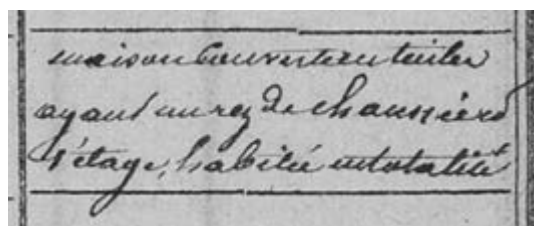 maison couverte en tuiles
ayant un rez de chaussée et
1 étage, habitée en totalité